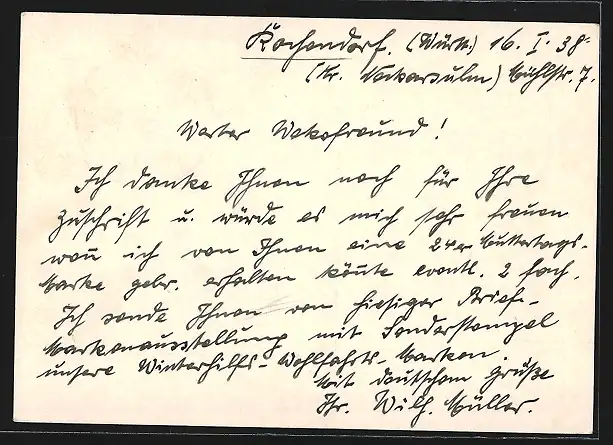 Kochendorf. (Württ.) 16. I. 38.
(Kr. Neckarsulm) Mühlstr. 7.
Werter Wekafreund!
Ich danke Ihnen noch für Ihre
Zuschrift u. würde es mich sehr freuen
wen̄ ich von Ihnen eine 24er Muttertags-
Marke gebr. erhalten kön̄te eventl. 2 fach.
Ich sende Ihnen von hiesiger Brief-
Markenausstellung mit Sonderstempel
unsere Winterhilfs-Wohlfahrts-Marken.
Mit deutschem grüße
Ihr. Wilh. Müller.